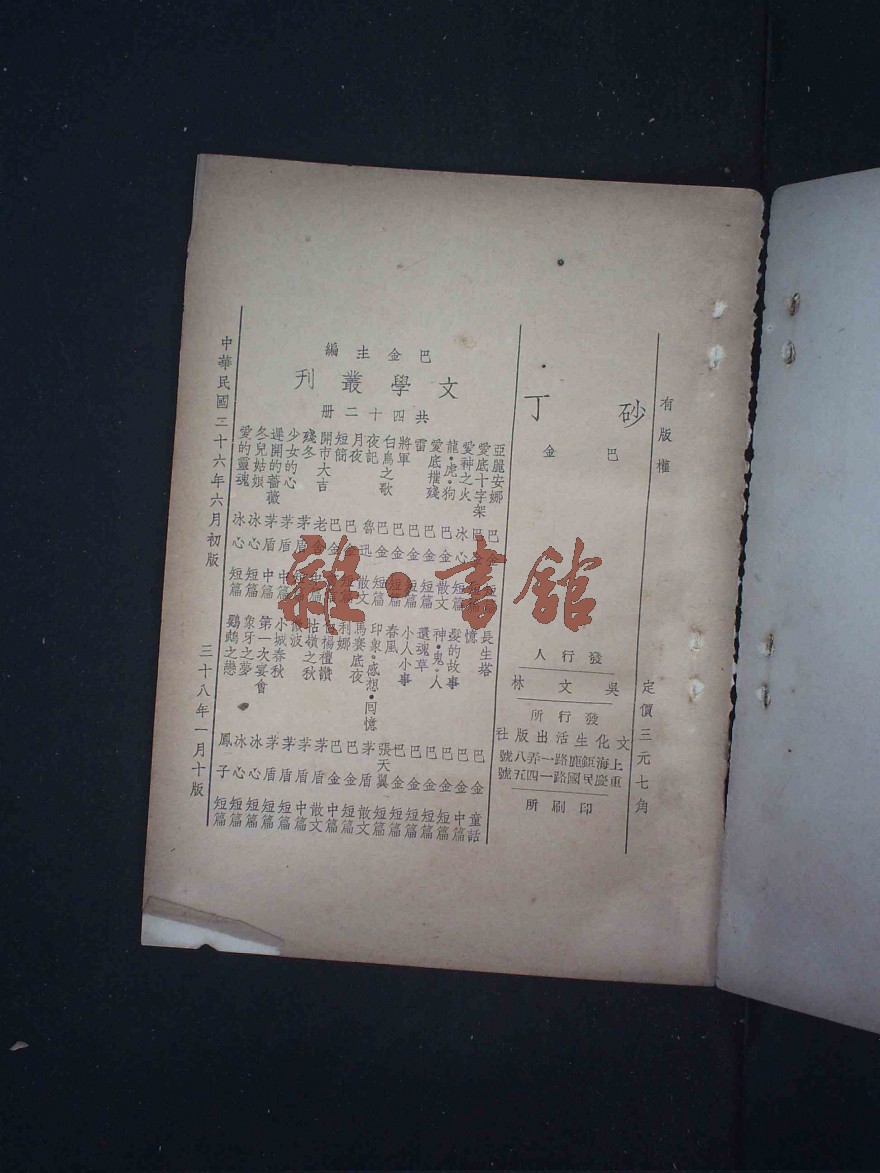 有版權
定價三元七角
砂丁
巴金
發行人
吳文林
發行所
文化生活出版社
上海鉅鹿路一弄八號
重慶民國路一四五號
印刷所
巴金主編
文學叢刊
共四十二册
亞麗安娜 巴金
愛底十字架 巴
愛神之火 冰心 短篇
龍·虎·狗 巴金 散文
愛底摧殘 巴金 短篇
雷 巴金 短篇
將軍 巴金 短篇
白鳥之歌 巴金 短篇
夜記 魯迅 散文
月夜 巴金 短篇
短簡 巴金
開市大吉 老舍 中篇
殘冬 茅盾
少女的心 茅盾
遲開的薔薇 茅盾 中篇
冬兒姑娘 冰心 短篇
愛的靈魂 冰心 短篇
長生塔 巴金 童話
憶 巴金 中篇
髮的故事 巴金 短篇
神·鬼·人 巴金 短篇
還魂草 巴金 短篇
小人小事 巴金 短篇
春風 張天翼 短篇
印象·感想·回憶 茅盾 散文
馬賽底夜 巴金 短篇
利娜 巴金 中篇
白楊禮讚 茅盾 散文
牯嶺之秋 茅盾 中篇
波 茅盾 短篇
小城春秋 茅盾 短篇
第一次宴會 冰心 短篇
象牙之夢 冰心 短篇
鸚鵡之戀 鳳子 短篇
中華民國三十六年六月初版
三十八年一月十版
雜·書館